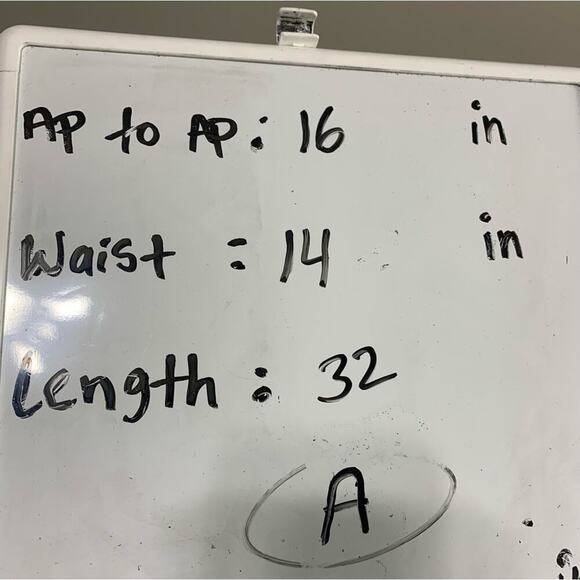 AP to AP: 16 in
Waist : 14 in
Length : 32
A